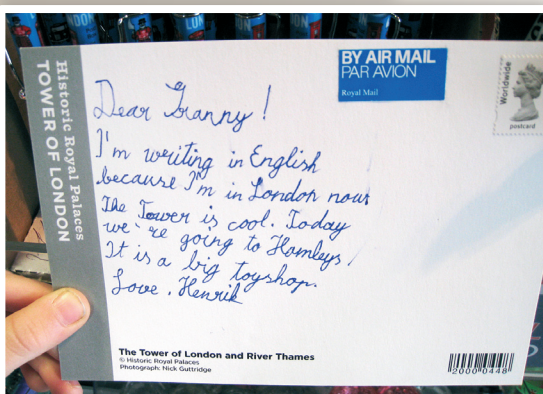 LONDON
Historic Royal Palaces
TOWER OF LONDON
BY AIR MAIL
PAR AVION
Royal Mail
Worldwide
postcard
Dear Granny!
I'm writing in English
because I'm in London now
The Tower is cool. Today
we're going to Hamleys!
It is a big toyshop.
Love. Henrik
The Tower of London and River Thames
© Historic Royal Palaces
Photograph: Nick Guttridge
2000 0448